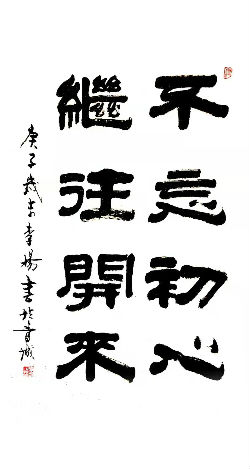 不忘初心
继往開來
庚子歲末李楊書於晋城